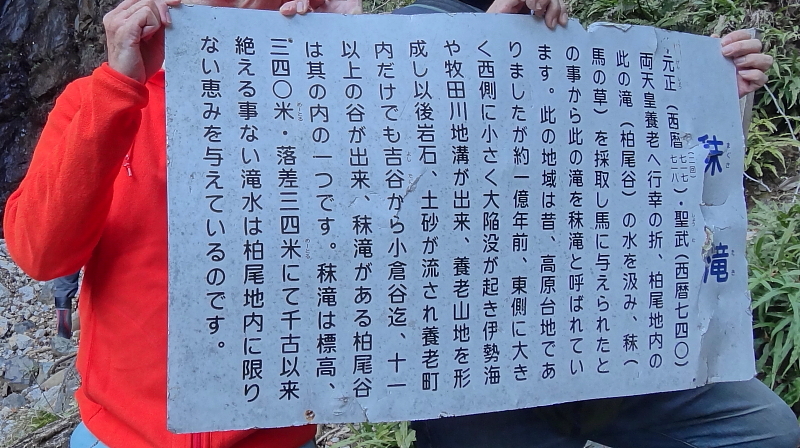 秣滝
まぐさ
たき
・元正（西暦七一七 七一八（二回））・聖武（西暦七四〇）
両天皇養老へ行幸の折、柏尾地内の
此の滝（柏尾谷）の水を汲み、秣（
馬の草）を採取し馬に与えられたと
の事から此の滝を秣滝と呼ばれてい
ます。此の地域は昔、高原台地であ
りましたが約一億年前、東側に大き
く西側に小さく大陥没が起き伊勢海
や牧田川地溝が出来、養老山地を形
成し以後岩石、土砂が流され養老町
内だけでも吉谷から小倉谷迄、十一
以上の谷が出来、秣滝がある柏尾谷
は其の内の一つです。秣滝は標高、
三四〇米・落差三四米にて千古以来
絶える事ない滝水は柏尾地内に限り
ない恵みを与えているのです。